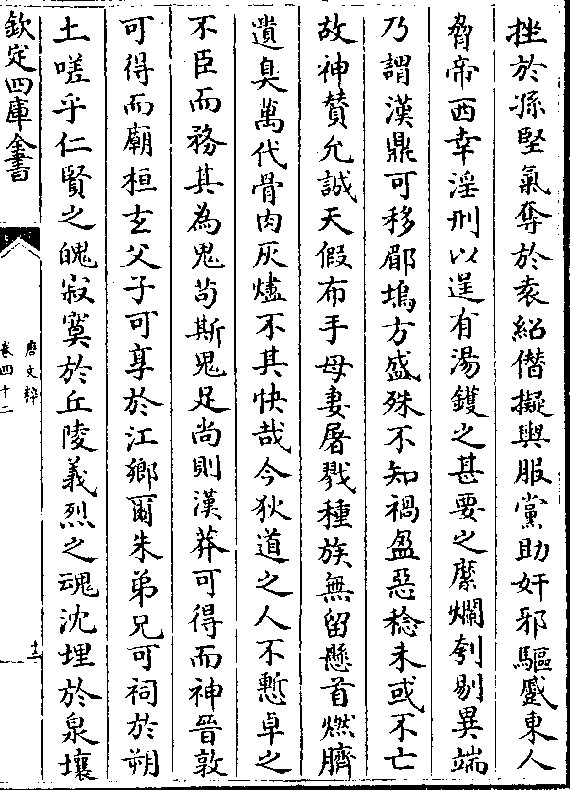 挫於孫堅氣奪於袁紹僭擬輿服黨助奸邪驅蹙東人
脅帝西幸淫刑以逞有湯鑊之甚要之糜爛刳剔異端
乃謂漢鼎可移郿塢方盛殊不知禍盈惡稔未或不亡
故神賛允誠天假布手母妻屠戮種族無留懸首燃臍
遺臭萬代骨肉灰燼不其快哉今狄道之人不慙卓之
不臣而務其為鬼茍斯鬼足尚則漢莽可得而神晉敦
可得而廟桓𤣥父子可享於江鄉爾朱弟兄可祠於朔
土嗟乎仁賢之魄寂寞於丘陵義烈之魂沈埋於泉壤
欽定四庫全書
唐文粹
卷四十二
十二